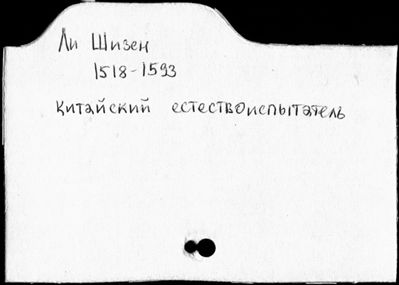 Ли Шизен
1518-1593
Китайский естествоиспытатель